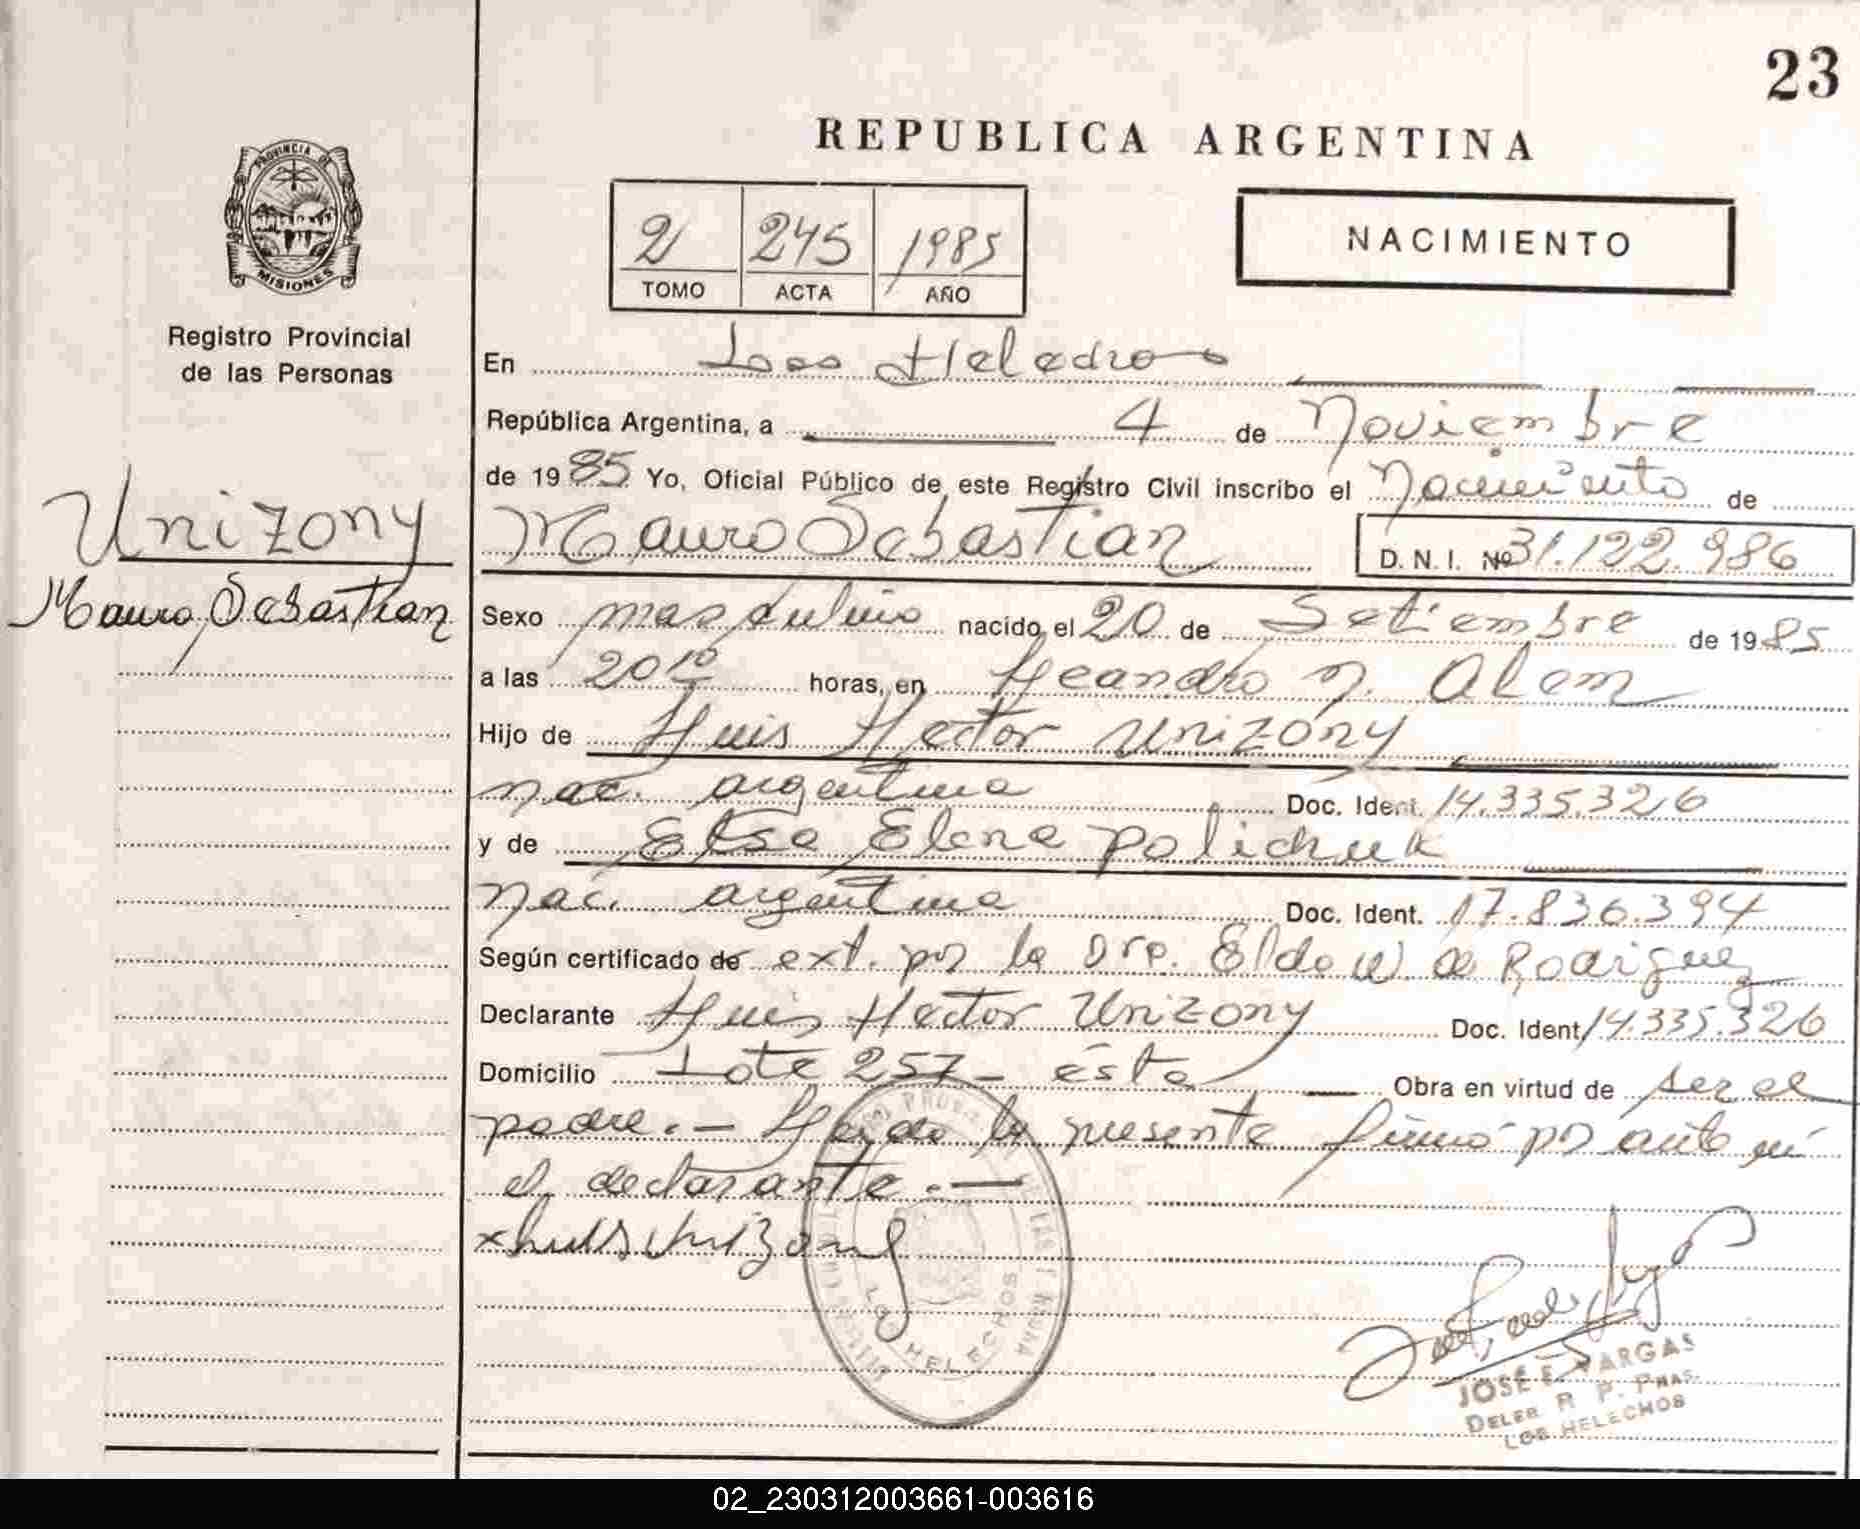 23
REPUBLICA ARGENTINA
PROVINCIA DE
MISIONES
Registro Provincial
de las Personas
2 245 1985
TOMO ACTA AÑO
NACIMIENTO
En Los Helechos
República Argentina, a 4 de Noviembre
de 1985 Yo, Oficial Público de este Registro Civil inscribo el Nacimiento de
Unizony
Mauro Sebastian
Mauro Sebastian D. N. I. Nº 31.122.986
Sexo masculino nacido el 20 de Setiembre de 1985
a las 20 10 horas, en Leandro N. Alem
Hijo de Luis Hector Unizony
nac. argentina Doc. Ident. 14.335.326
y de Elsa Elena Polichuk
nac. argentina Doc. Ident. 17.836.394
Según certificado de ext. por la Dra. Elda W de Rodriguez
Declarante Luis Hector Unizony Doc. Ident. 14.335.326
Domicilio Lote 257 - ésta Obra en virtud de ser el
padre.- Leida la presente firmó por ante mi
el declarante.-
x Luis Unizony
LOS HELECHOS
JOSE E. VARGAS
DELEG. R. P. PNAS.
LOS HELECHOS
02_230312003661-003616